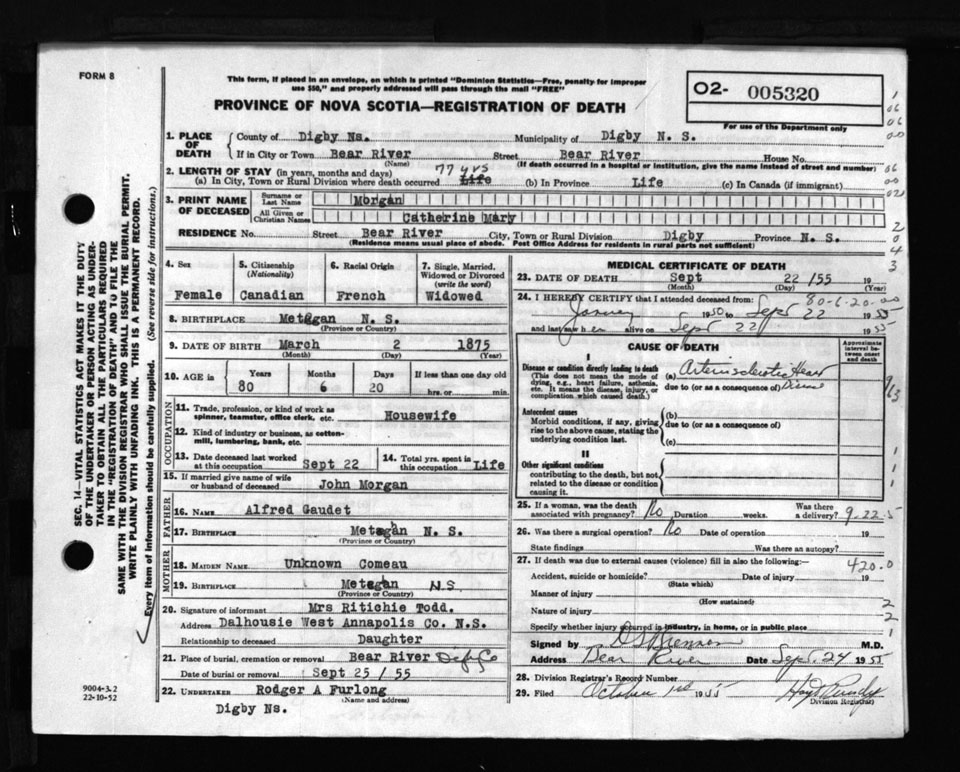 FORM 8
This form, if placed in an envelope, on which is printed "Dominion Statistics—Free, penalty for improper
use $50," and properly addressed will pass through the mail "FREE"
PROVINCE OF NOVA SCOTIA—REGISTRATION OF DEATH
O2- 005320
For use of the Department only
1. PLACE OF DEATH
County of Digby Ns. Municipality of Digby N. S.
If in City or Town Bear River Street Bear River House No.
(Name) (If death occurred in a hospital or institution, give the name instead of street and number)
2. LENGTH OF STAY (in years, months and days) 77 yrs
(a) In City, Town or Rural Division where death occurred Life (b) In Province Life (c) In Canada (if immigrant)
3. PRINT NAME OF DECEASED
Surname or Last Name Morgan
All Given or Christian Names Catherine Mary
RESIDENCE No. Street Bear River City, Town or Rural Division Digby Province N. S.
(Residence means usual place of abode. Post Office Address for residents in rural parts not sufficient)
4. Sex Female
5. Citizenship (Nationality) Canadian
6. Racial Origin French
7. Single, Married, Widowed or Divorced (write the word) Widowed
8. BIRTHPLACE Metegan N. S.
(Province or Country)
9. DATE OF BIRTH March 2 1875
(Month) (Day) (Year)
10. AGE IN Years Months Days If less than one day old
80 6 20 hrs. or min.
OCCUPATION
11. Trade, profession, or kind of work as spinner, teamster, office clerk, etc. Housewife
12. Kind of industry or business, as cotton-mill, lumbering, bank, etc.
13. Date deceased last worked at this occupation Sept 22
14. Total yrs. spent in this occupation Life
15. If married give name of wife or husband of deceased John Morgan
FATHER
16. NAME Alfred Gaudet
17. BIRTHPLACE Metegan N. S.
(Province or Country)
MOTHER
18. MAIDEN NAME Unknown Comeau
19. BIRTHPLACE Metegan N.S
(Province or Country)
20. Signature of informant Mrs Ritichie Todd.
Address Dalhousie West Annapolis Co. N.S.
Relationship to deceased Daughter
21. Place of burial, cremation or removal Bear River Digby Co
Date of burial or removal Sept 25 / 55
22. UNDERTAKER Rodger A Furlong
(Name and address)
Digby Ns.
MEDICAL CERTIFICATE OF DEATH
23. DATE OF DEATH Sept 22 /55 19
(Month) (Day)
80-6-20-00
24. I HEREBY CERTIFY that I attended deceased from:
January 1950 to Sept 22 1955
and last saw her alive on Sept 22 1955
CAUSE OF DEATH
Approximate interval between onset and death
I
Disease or condition directly leading to death
(This does not mean the mode of dying, e.g., heart failure, asthenia, etc. It means the disease, injury, or complication which caused death.)
(a) Arteriosclerotic Heart
due to (or as a consequence of) Disease
Antecedent causes
Morbid conditions, if any, giving rise to the above cause, stating the underlying condition last.
(b)
due to (or as a consequence of)
(c)
II
Other significant conditions
contributing to the death, but not related to the disease or condition causing it.
25. If a woman, was the death associated with pregnancy? No Duration weeks. Was there a delivery? 9-22-5
26. Was there a surgical operation? No Date of operation 19
State findings Was there an autopsy?
27. If death was due to external causes (violence) fill in also the following:— 420.0
Accident, suicide or homicide? Date of injury 19
(State which)
Manner of injury
(How sustained)
Nature of injury
Specify whether injury occurred in industry, in home, or in public place
Signed by M.D.
Address Bear River Date Sept. 24 1955
28. Division Registrar's Record Number
29. Filed October 1st 1955
Division Registrar
SEC. 14—VITAL STATISTICS ACT MAKES IT THE DUTY
OF THE UNDERTAKER OR PERSON ACTING AS UNDER-
TAKER TO OBTAIN ALL THE PARTICULARS REQUIRED
IN THE "REGISTRATION OF DEATH" AND TO FILE THE
SAME WITH THE DIVISION REGISTRAR WHO SHALL ISSUE THE BURIAL PERMIT.
WRITE PLAINLY WITH UNFADING INK. THIS IS A PERMANENT RECORD.
Every item of information should be carefully supplied. (See reverse side for instructions.)
9004-3.2
22-10-52